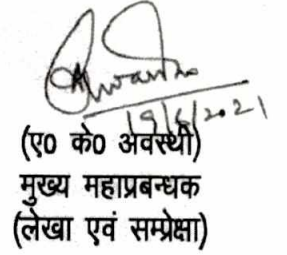 19/6/2021
(ए0 के0 अवस्थी)
मुख्य महाप्रबन्धक
(लेखा एवं सम्प्रेक्षा)